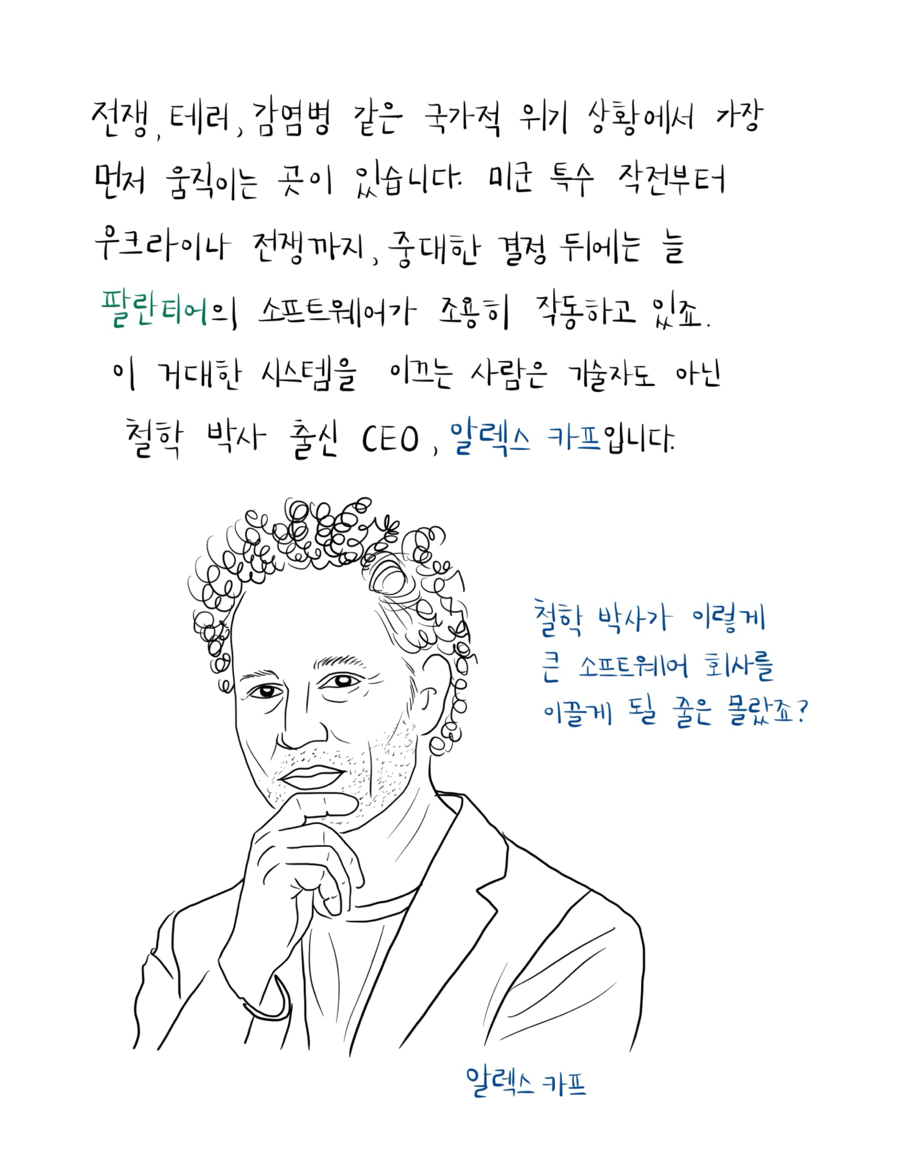 전쟁, 테러, 감염병 같은 국가적 위기 상황에서 가장
먼저 움직이는 곳이 있습니다. 미군 특수 작전부터
우크라이나 전쟁까지, 중대한 결정 뒤에는 늘
팔란티어의 소프트웨어가 조용히 작동하고 있죠.
이 거대한 시스템을 이끄는 사람은 기술자도 아닌
철학 박사 출신 CEO, 알렉스 카프입니다.
철학 박사가 이렇게
큰 소프트웨어 회사를
이끌게 될 줄은 몰랐죠?
알렉스 카프